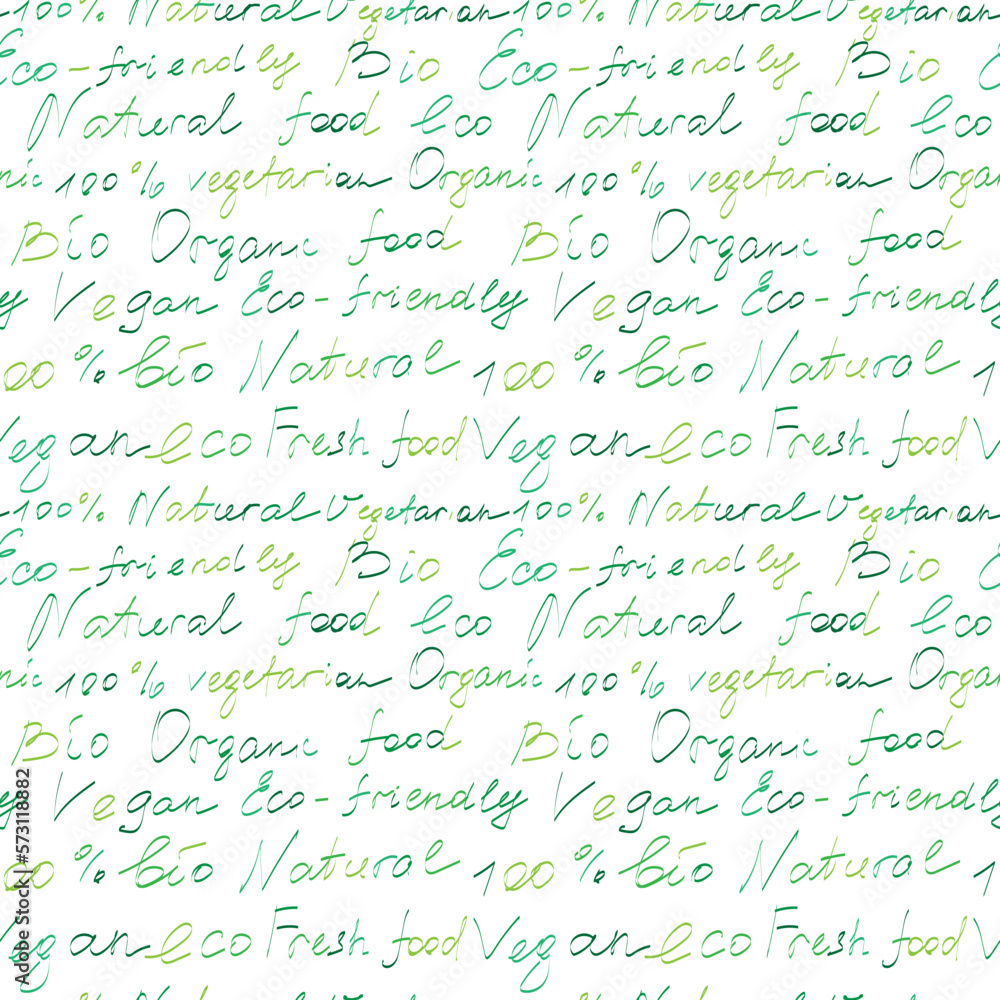 100% Natural Vegetarian 100% Natural Vegetarian
Eco-friendly Bio Eco-friendly Bio E
Natural food Eco Natural food Eco
nic 100% vegetarian Organic 100% vegetarian Orga
Bio Organic food Bio Organic food
y Vegan Eco-friendly Vegan Eco-friendly
00% bio Natural 100% bio Natural 1
Vegan eco Fresh food Vegan eco Fresh food V
100% Natural Vegetarian 100% Natural Vegetarian
Eco-friendly Bio Eco-friendly Bio E
Natural food Eco Natural food Eco
nic 100% vegetarian Organic 100% vegetarian Orga
Bio Organic food Bio Organic food
y Vegan Eco-friendly Vegan Eco-friendly
00% bio Natural 100% bio Natural 1
Vegan eco Fresh food Vegan eco Fresh food V
Adobe Stock | #573118882